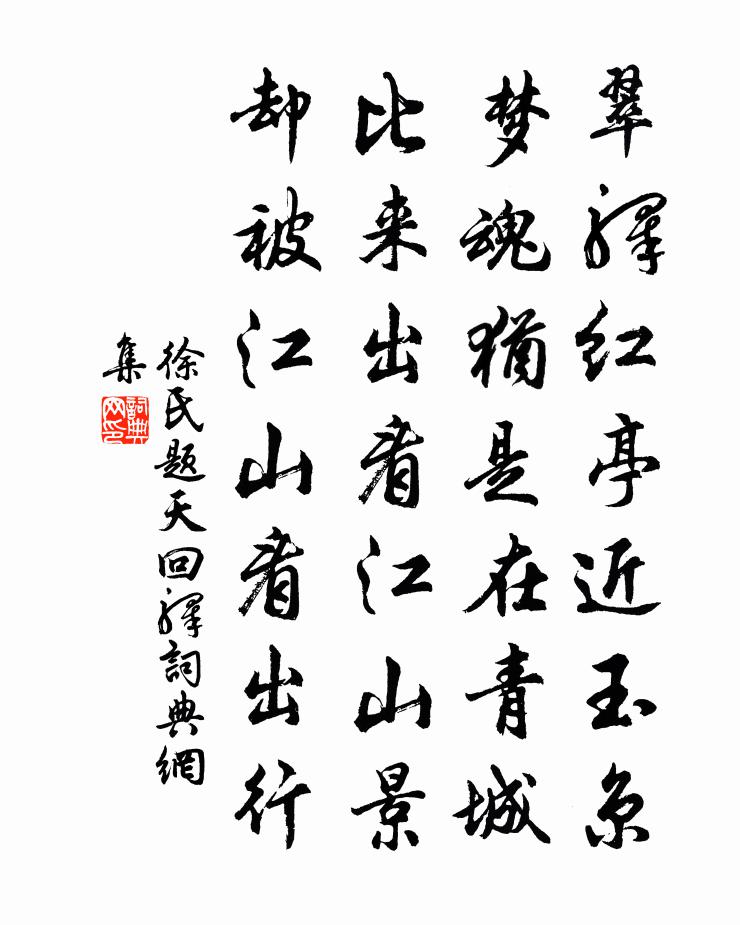 翠驿红亭近玉京
梦魂犹是在青城
比来出看江山景
却被江山看出行
徐氏题天回驿詞典網
集
詞典网印